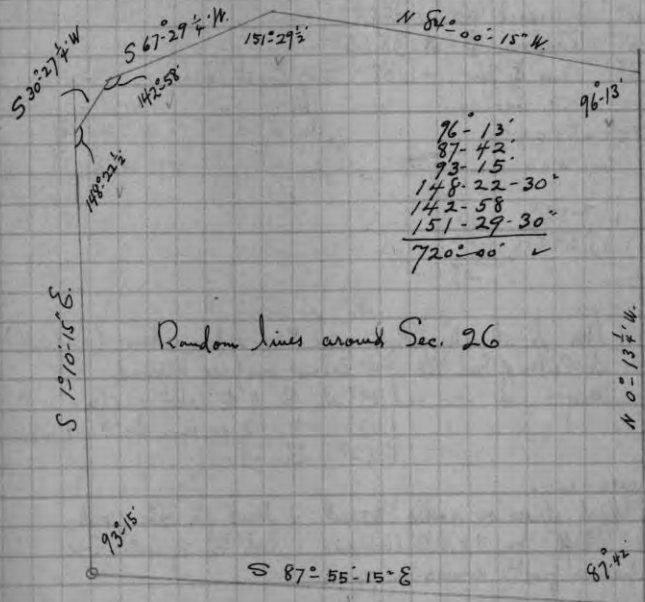 S 30°-27¼' W
S 67°-29¼' W.
151°-29½'
N 84°-00'-15" W.
142°-58'
96°-13'
148°-22½'
96°-13'
87-42'
93-15'
148-22-30"
142-58
151-29-30"
720°-00'
S 1°-10'-15" E.
Random lines around Sec. 26
N 0°-13¼' W.
93°-15'
S 87°-55'-15" E
87°-42'